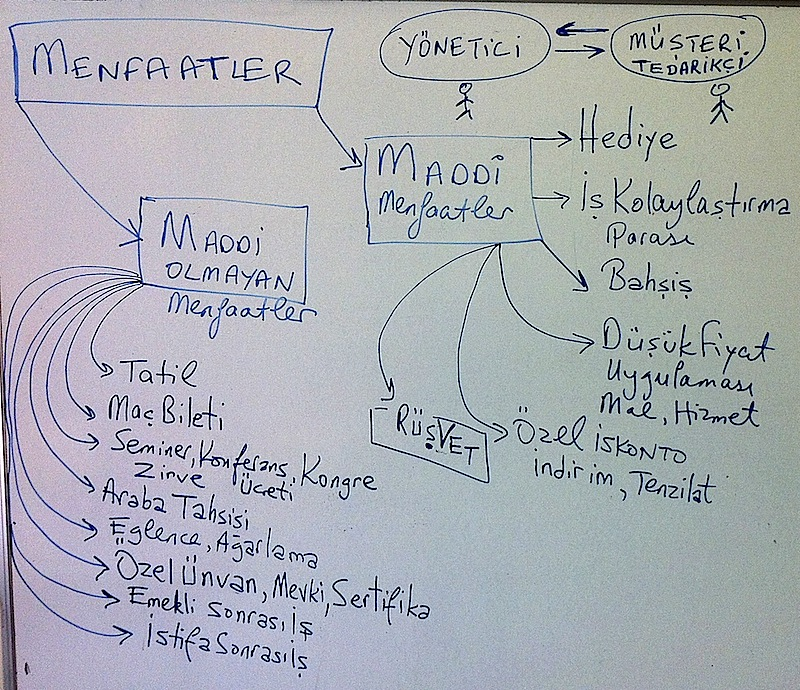 MENFAATLER
YÖNETİCİ
MÜSTERİ
TEDARİKÇİ
MADDÎ
Menfaatler
Hediye
İş Kolaylaştırma
Parası
Bahşiş
Düşük Fiyat
Uygulaması
Mal, Hizmet
Özel İSKONTO
indirim, Tenzilat
RÜŞVET
MADDİ
OLMAYAN
Menfaatler
Tatil
Maç Bileti
Seminer, Konferans, Kongre
Zirve Ücreti
Araba Tahsisi
Eğlence, Ağarlama
Özel Ünvan, Mevki, Sertifika
Emekli sonrası İş
İstifa Sonrası İş